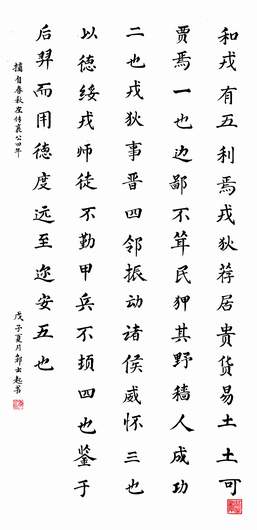 和戎有五利焉戎狄荐居贵货易土土可
贾焉一也边鄙不耸民狎其野穑人成功
二也戎狄事晋四邻振动诸侯威怀三也
以德绥戎师徒不勤甲兵不顿四也鉴于
后羿而用德度远至迩安五也
摘自春秋左传襄公四年
戊子夏月郭士起书